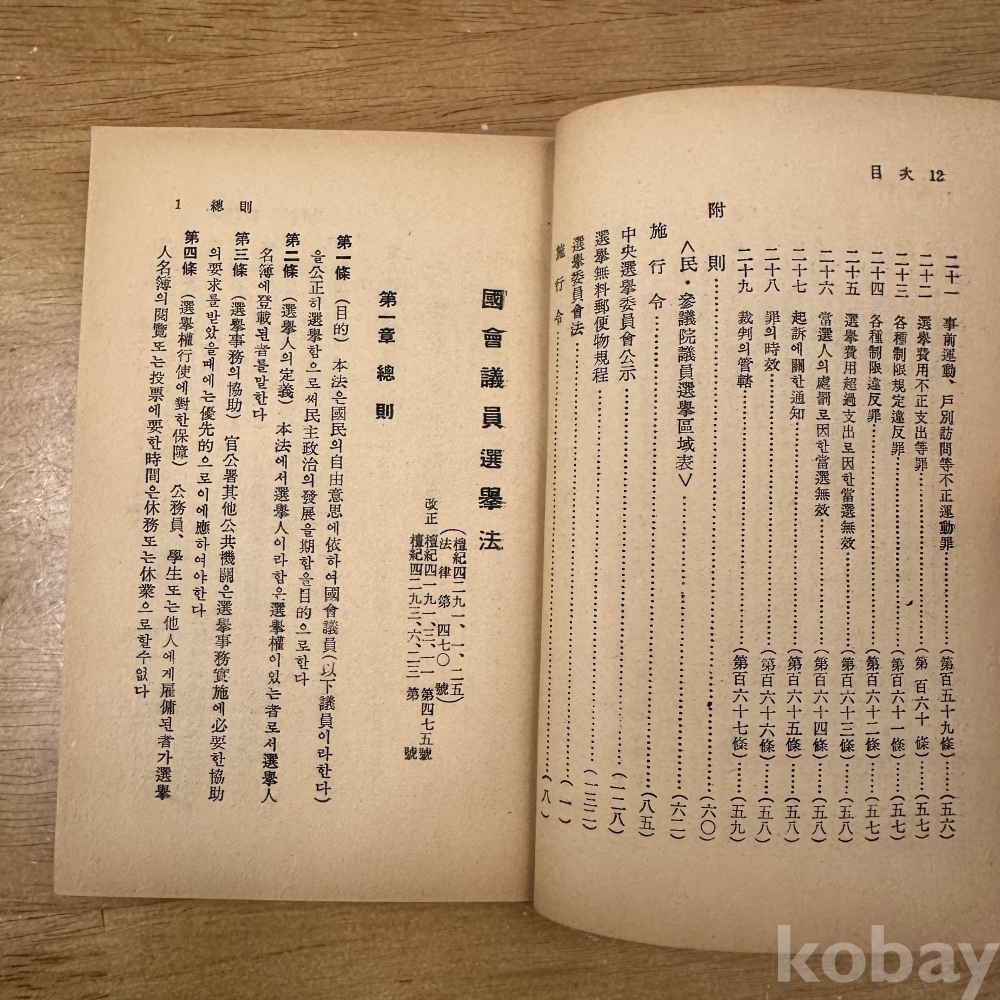 目次 12
二十一 事前運動、戶別訪問等不正運動罪……(第百五十九條)……(五六)
二十二 選擧費用不正支出等罪……(第百六十條)……(五七)
二十三 各種制限規定違反罪……(第百六十一條)……(五七)
二十四 各種制限違反罪……(第百六十二條)……(五七)
二十五 選擧費用超過支出로因한當選無效……(第百六十三條)……(五八)
二十六 當選人의處罰로因한當選無效……(第百六十四條)……(五八)
二十七 起訴에關한通知……(第百六十五條)……(五八)
二十八 罪의時效……(第百六十六條)……(五八)
二十九 裁判의管轄……(第百六十七條)……(五九)
附則……(六〇)
<民·參議院議員選擧區域表>……(六二)
施行令……(八五)
中央選擧委員會公示……(一二八)
選擧無料郵便物規程……(一三二)
選擧委員會法……(一)
施行令……(八)
1 總則
國會議員選擧法
(檀紀四二九一、一、二五)
(法律第四七〇號)
改正 檀紀四二九一、三、一一 第四七五號
檀紀四二九三、六、二三 第 號
第一章 總則
第一條 (目的) 本法은國民의自由意思에依하여國會議員(以下議員이라한다)
을公正히選擧함으로써民主政治의發展을期함을目的으로한다
第二條 (選擧人의定義) 本法에서選擧人이라함은選擧權이있는者로서選擧人
名簿에登載된者를말한다
第三條 (選擧事務의協助) 官公署其他公共機關은選擧事務實施에必要한協助
의要求를받았을때에는優先的으로이에應하여야한다
第四條 (選擧權行使에對한保障) 公務員、學生또는他人에게雇傭된者가選擧
人名簿의閱覽또는投票에要한時間은休務또는休業으로할수없다
kobay